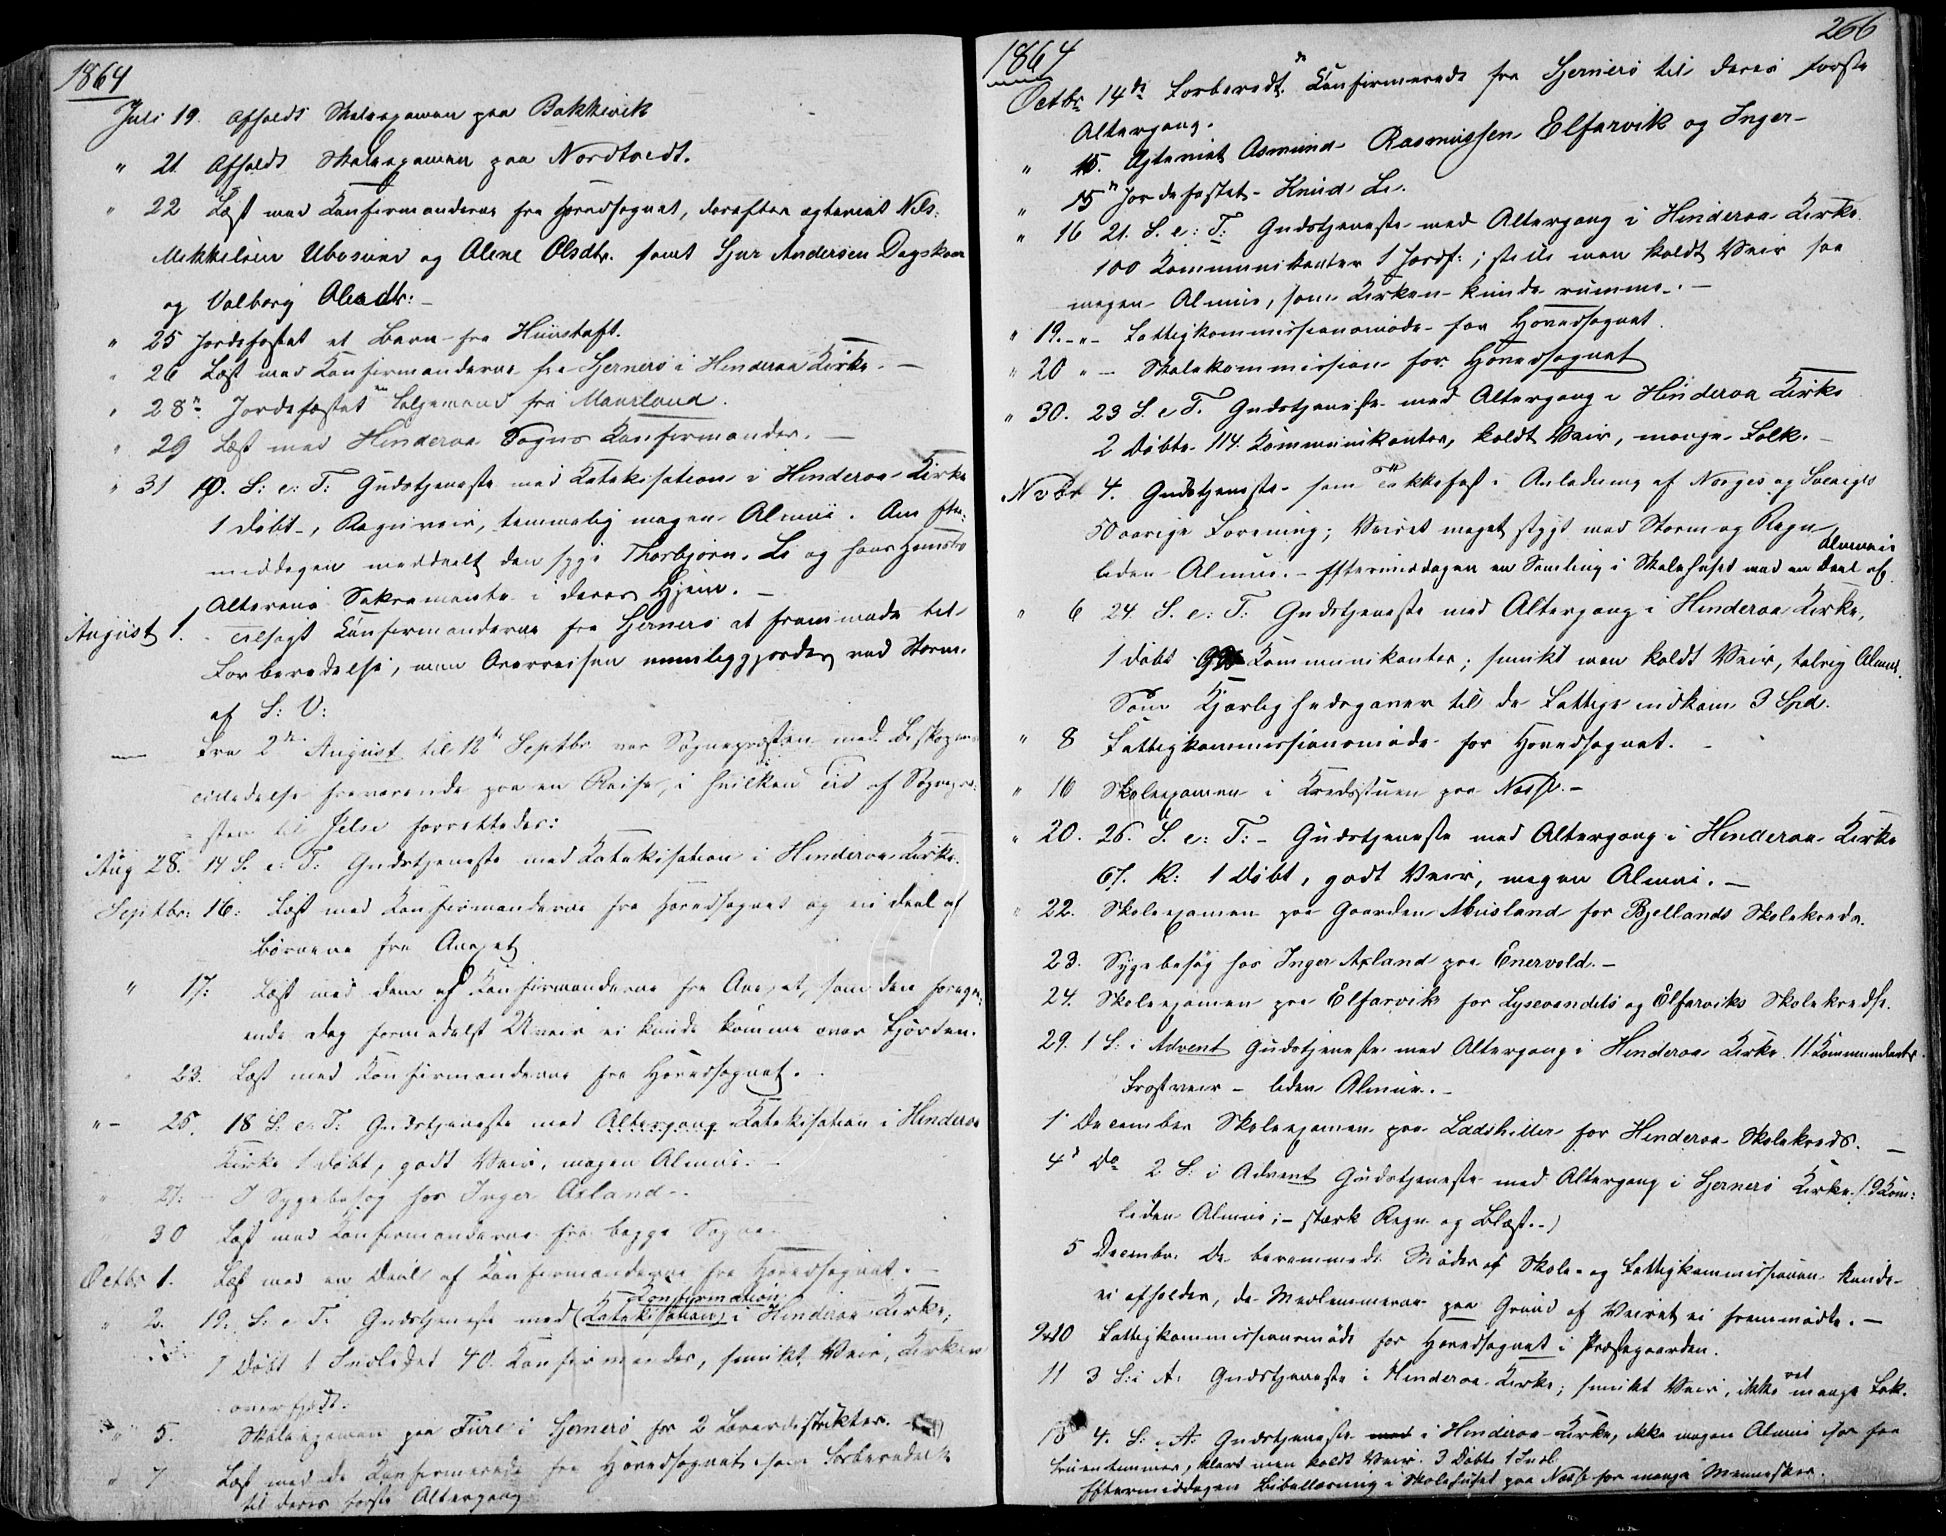 1864
Juli 19. Afholdt Skoleexamen paa Bakkevik
" 21. Afholdt Skoleexamen paa Nordtvedt.
" 22 Læst med Konfirmanderne fra Hovedsognet, derefter ægteviet Nils
Mikkelsen Ubøsund og Alene Olsdtr. samt Sjur Andersen Dagskaar
og Valborg Olsdtr: -
" 25 Jordfæstet et Barn fra
" 26 Læst med Konfirmanderne fra Sjernerø i Hinderaa Kirke. -
" 28 Jordfæstet fra Maurland.
" 29 Læst med Hinderaa Sogns Konfirmander. -
" 31 10. S. e: T: Gudstjeneste med Katekisation i Hinderaa Kirke
1 Døbt -, Regnveir, temmelig megen Almue. Om Efter-
middagen meddeelt den syge Thorbjørn Li og hans Hustru
Alterens Sakramente i deres Hjem. -
August 1. Tilsagt Konfirmanderne fra Sjernerø at fremmøde til
Forberedelse, men Overreisen umuliggjordes ved Storm
af S: V:
— Fra 2den August til 12te Septbr var Sognepræsten med Biskopens
Tilladelse fraværende paa en Reise, i hvilken Tid af Sognepræ-
sten til Jelse forrettedes:
Aug 28. 14 S. e: T: Gudstjeneste med Katekisation i Hinderaa Kirke.
Septbr: 16: Læst med Konfirmanderne fra Hovedsognet og en Deel af
Børnene fra Annexet
" 17: Læst med dem af Konfirmanderne fra Annexet, som den foregaa-
ende Dag formedelst Uveir ei kunde komme over Fjorden.
" 23. Læst med Konfirmanderne fra Hovedsognet.
" - 25. 18 S. e. T: Gudstjeneste med Altergang Katekisation i Hinderaa
Kirke 1 Døbt, godt Veir, megen Almue. -
" 27: - Sygebesøg hos Inger Axland -.
" 30 Læst med Konfirmanderne fra begge Sogne.
Octbr 1. Læst med en Deel af Konfirmanderne fra Hovedsognet. -
Konfirmation
" 2. 19. S. e T. Gudstjeneste med (Katekisation) i Hinderaa Kirke;
1 Døbt 1 Indledet 40 Konfirmander, smukt Veir, Kirken
overfyldt.
" 5. Skoleexamen paa Fure i Sjernerø for 2 Lærerdistrikter. -
" 7 Læst med de Konfirmerede fra Hovedsognet som Forberedelse
til deres første Altergang
266
1864
Octbr 14de Forberedt de Konfirmerede fra Sjernerø til deres første
Altergang.
" 15. Ægteviet Asmund Rasmussen Elfarvik og Inger
" 15 Jordfæstet Knud Li.
" 16 21. S. e: T: Gudstjeneste med Altergang i Hinderaa Kirke.
100 Kommunikanter 1 Jordf: ; stille men koldt Veir saa
megen Almue, som Kirken kunde rumme. -
" 19. - " - Fattigkommissionsmøde for Hovedsognet.
" 20 " - Skolekommission for Hovedsognet
" 30. 23 S. e T. Gudstjeneste med Altergang i Hinderaa Kirke
2 Døbte 114. Kommunikanter, koldt Veir, mange Folk. -
Novbr 4. Gudstjeneste som Takkefest i Anledning af Norges og Sveriges
50 aarige Forening; Veiret meget stygt med Storm og Regn
liden Almue. - Eftermiddagen en Samling i Skolehuset med en Deel af
Almuen
" 6 24. S. e: T: Gudstjeneste med Altergang i Hinderaa Kirke,
1 Døbt Kommunikanter; smukt men koldt Veir, talrig Almue.
Som Kjærlighedsgaver til de Fattige indkom 3 Spd.
" 8 Fattigkommissionsmøde for Hovedsognet. -
" 16 Skoleexamen i Kredsstuen paa Næsse. -
" 20. 26. S. e: T: - Gudstjeneste med Altergang i Hinderaa Kirke
67. K: 1 Døbt, godt Veir, megen Almue. -
" 22. Skoleexamen paa Gaarden Musland for Bjellands Skolekreds.
23. Sygebesøg hos Inger Axland paa Enervold. -
24. Skoleexamen paa Elfarvik for Lysevandets og Elfarviks Skolekredse.
29. 1 S: i Advent Gudstjeneste med Altergang i Hinderaa Kirke. 11 Kommunikanter.
Frostveir - liden Almue. -
1 December Skoleexamen paa Ladshiller for Hinderaa Skolekreds. -
4 Do 2 S: i Advent Gudstjeneste med Altergang i Sjernerø Kirke. (9 Kom:
liden Almue; - stærk Regn og Blæst. -)
5 Decembr. De berammede Møder af Skole- og Fattigkommissionen kunde
ei afholdes, da Medlemmerne paa Grund af Veiret ei fremmødte. -
" 10 Fattigkommissionsmøde for Hovedsognet i Præstegaarden.
11 3 S: i A: Gudstjeneste i Hinderaa Kirke; smukt Veir, ikke ret mange Folk.
18 4. S. i A: Gudstjeneste med i Hinderaa Kirke, ikke megen Almue især faa
Fruentimmer, klart men koldt Veir. 3 Døbte 1 Indl.
Eftermiddagen Bibellæsning i Skolehuset paa Næsse for mange Mennesker.